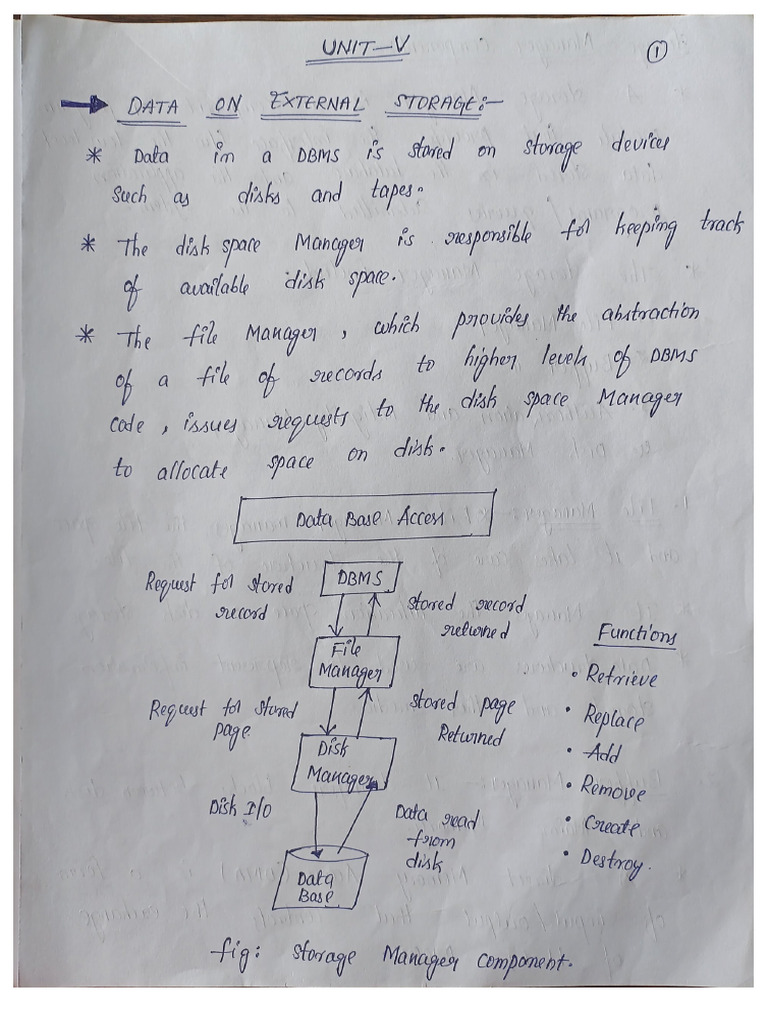 UNIT-V
1
DATA ON EXTERNAL STORAGE:-
* Data in a DBMS is stored on storage devices
such as disks and tapes.
* The disk space Manager is responsible for keeping track
of available disk space.
* The file Manager, which provides the abstraction
of a file of records to higher levels of DBMS
code, issues requests to the disk space Manager
to allocate space on disk.
Data Base Access
DBMS
Request for stored
record
Stored record
returned
File
Manager
Request for stored
page
Stored page
Returned
Disk
Manager
Disk I/O
Data read
from
disk
Data
Base
Functions
• Retrieve
• Replace
• Add
• Remove
• Create
• Destroy.
fig: Storage Manager component.